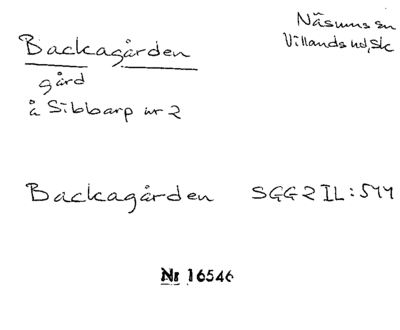 Backagården
Näsums sn
Villands hd, Sk
gård
å Sibbarp nr 2
Backagården SGG 2 IL:544
Nr 16546